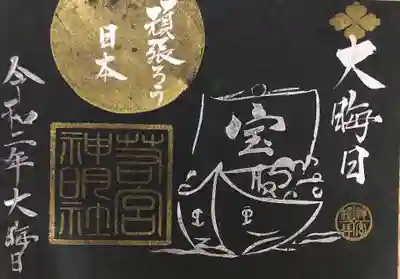 大晦日
宝
頑張ろう
日本
若宮
神明社
令和二年 大晦日